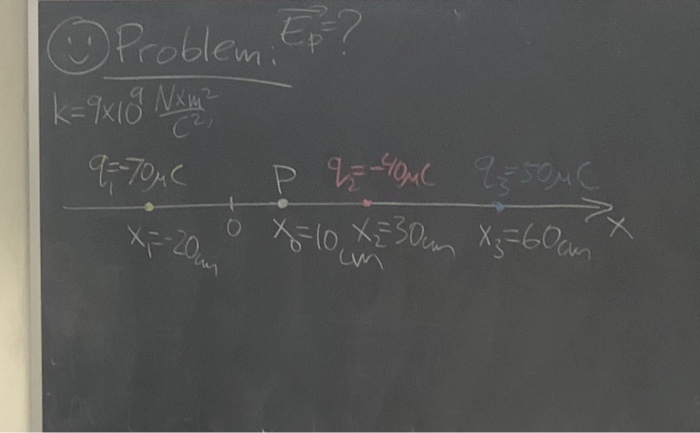 Problem: E⃗p=?
k=9x10⁹ Nxm²/C²,
q₁=-70μC P q₂=-40μC q₃=50μC
0 X
x₁=-20cm x₀=10cm x₂=30cm x₃=60cm